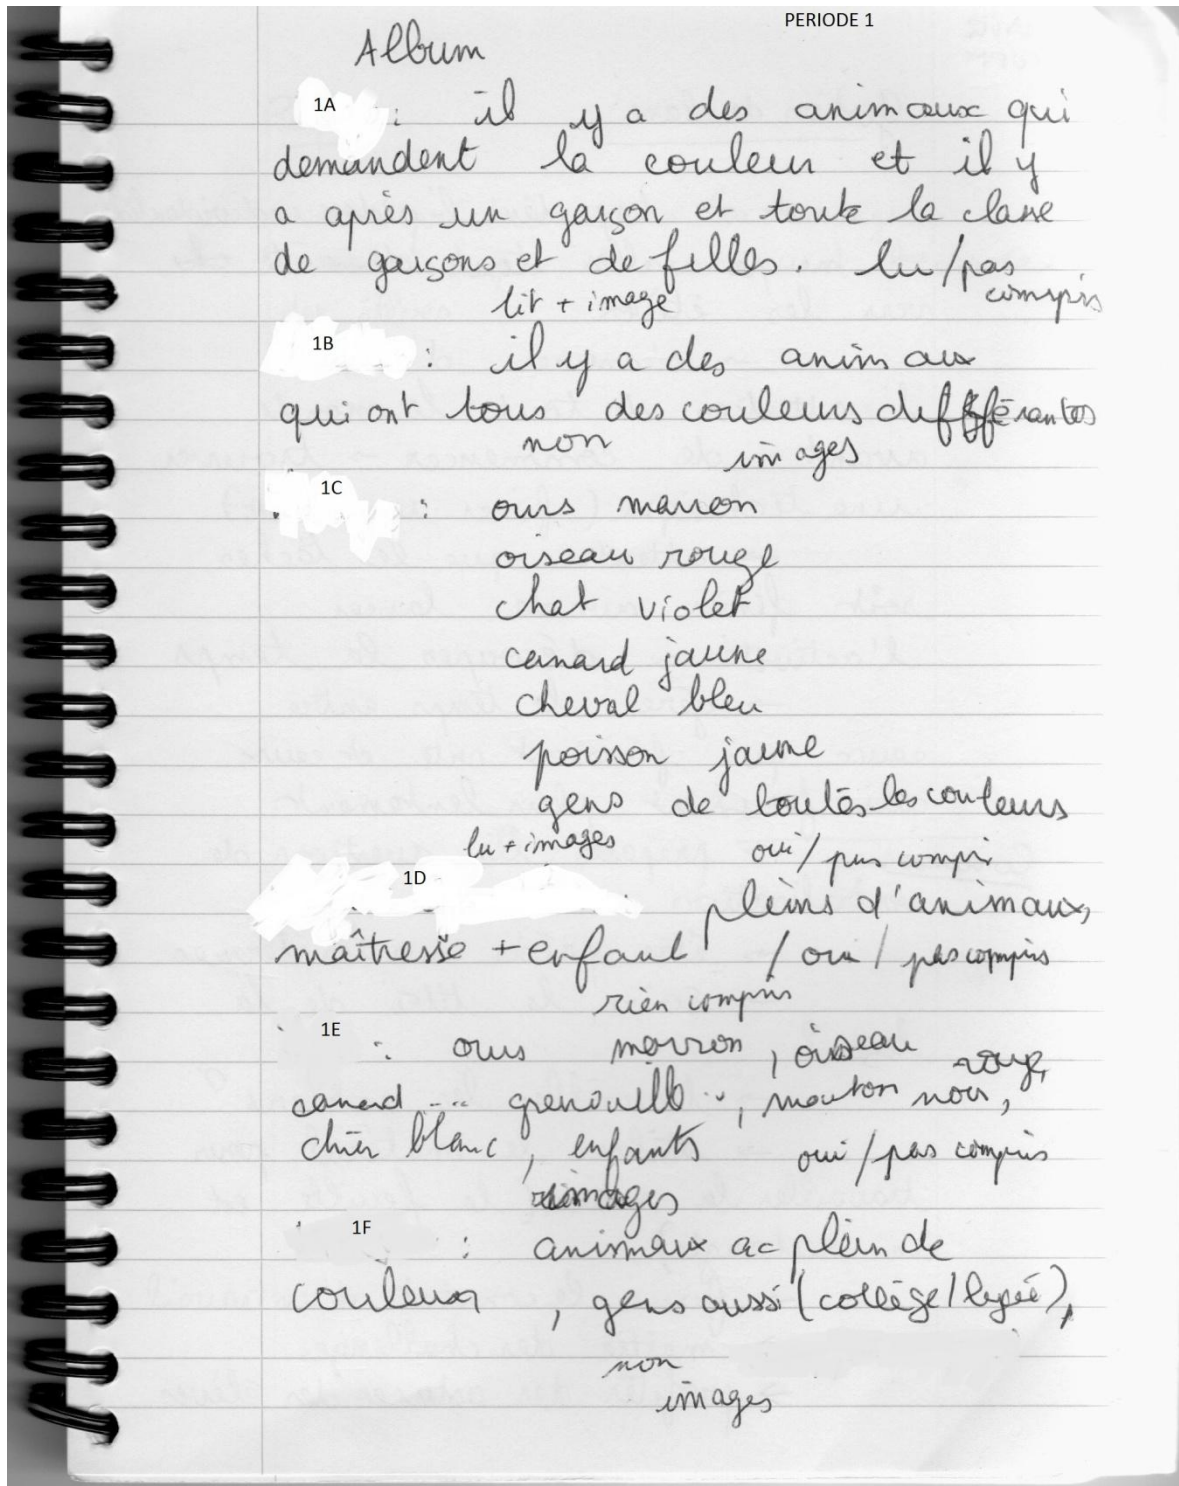 PERIODE 1
Album
1A : il y a des animaux qui
demandent la couleur et il y
a après un garçon et toute la classe
de garçons et de filles. lu/pas
compris
lit + image
1B : il y a des animaux
qui ont tous des couleurs différantes
non images
1C : ours marron
oiseau rouge
chat violet
canard jaune
cheval bleu
poisson jaune
gens de toutes les couleurs
lu + images oui/pas compris
1D pleins d'animaux,
maîtresse + enfant / oui / pas compris
rien compris
1E : ours marron, oiseau rouge,
canard ... grenouille .., mouton noir,
chien blanc, enfants oui/pas compris
images
1F : animaux ac plein de
couleur, gens aussi (collège/lycée),
non
images